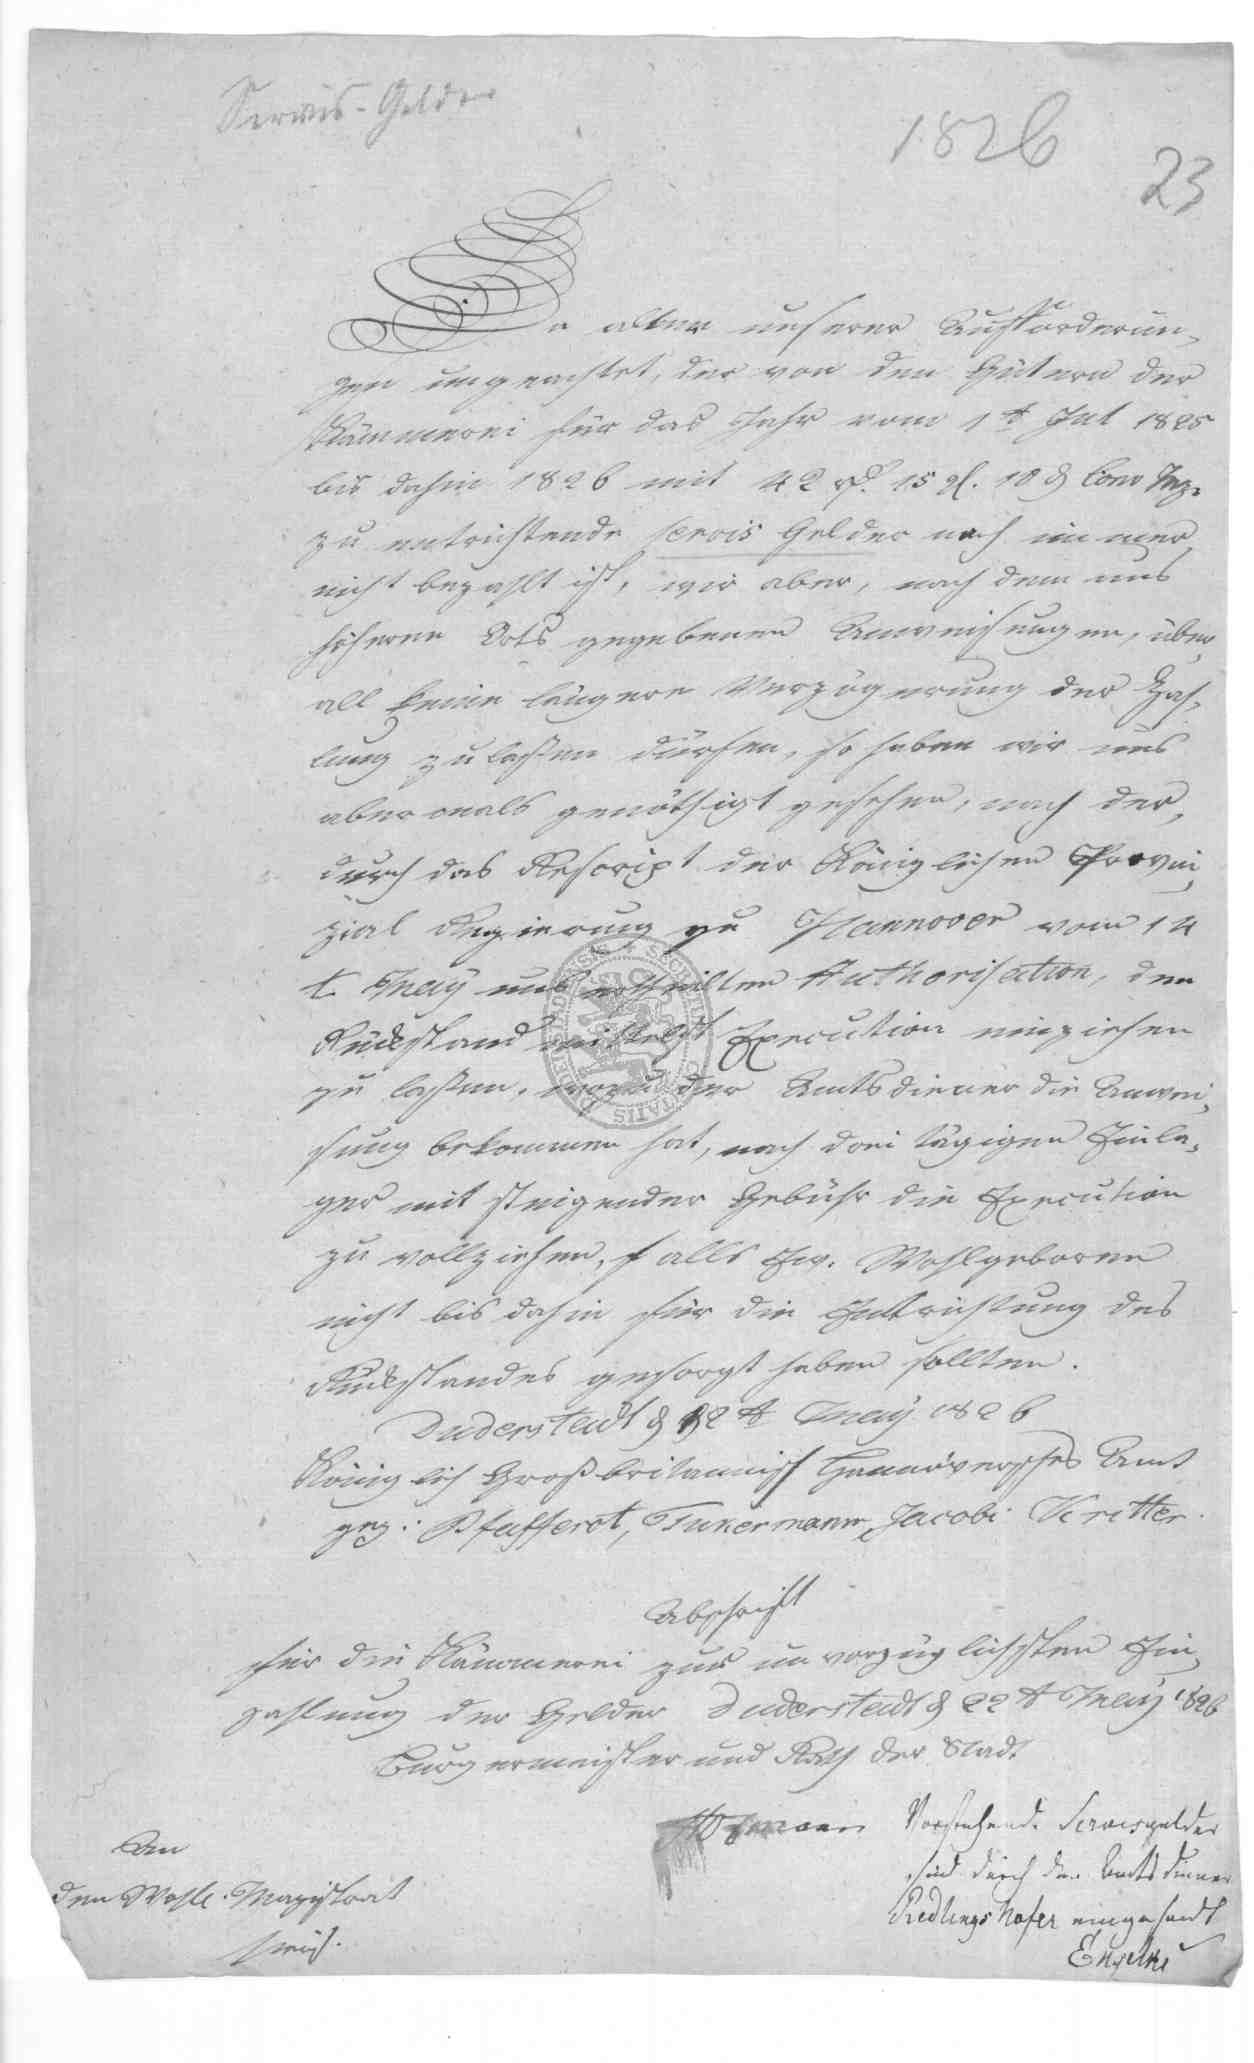 Servis-Gelder
1826
23
Da aller unserer Aufforderun-
gen ungeachtet, der von den Gütern der
Kämmerei für das Jahr vom 1t Jul 1825
bis dahin 1826 mit 42 rth. 15 gl. 10 d Conv Mz.
zu entrichtende servis Gelder noch immer
nicht bezahlt ist, wir aber, nach dem uns
höheren Orts gegebenen Anweisungen, über
all keine längere Verzögerung der Zah-
lung zulassen dürfen, so haben wir uns
abermals genöthigt gesehen, nach der,
durch das Rescript der Königlichen Provin
zial Regierung zu Hannover vom 14
t May uns ertheilten Authorisation, den
Rückstand mittelst Execution einziehen
zu lassen, wozu der Amtsdiener die Anwei-
sung bekommen hat, nach drei tägigen Einla-
ger mit steigender Gebühr die Execution
zu vollziehen, falls Ew. Wohlgeboren
nicht bis dahin für die Entrichtung des
Rückstandes gesorgt haben sollten.
Duderstadt d 22t May 1826
Königlich Großbritannisch Hannöversches Amt
gez: Pfafferot, Tukermann, Jacobi Kritter.
Abschrift
für die Kämmerei zur unvorzüglichsten Ein
zahlung der Gelder Duderstadt d 22t May 1826
Bürgermeister und Rath der Stadt
Vorstehende Servisgelder
sind durch den Amtsdiener
Redlingshöfer eingesandt
Engelke
An
den Wohll. Magistrat
hies.